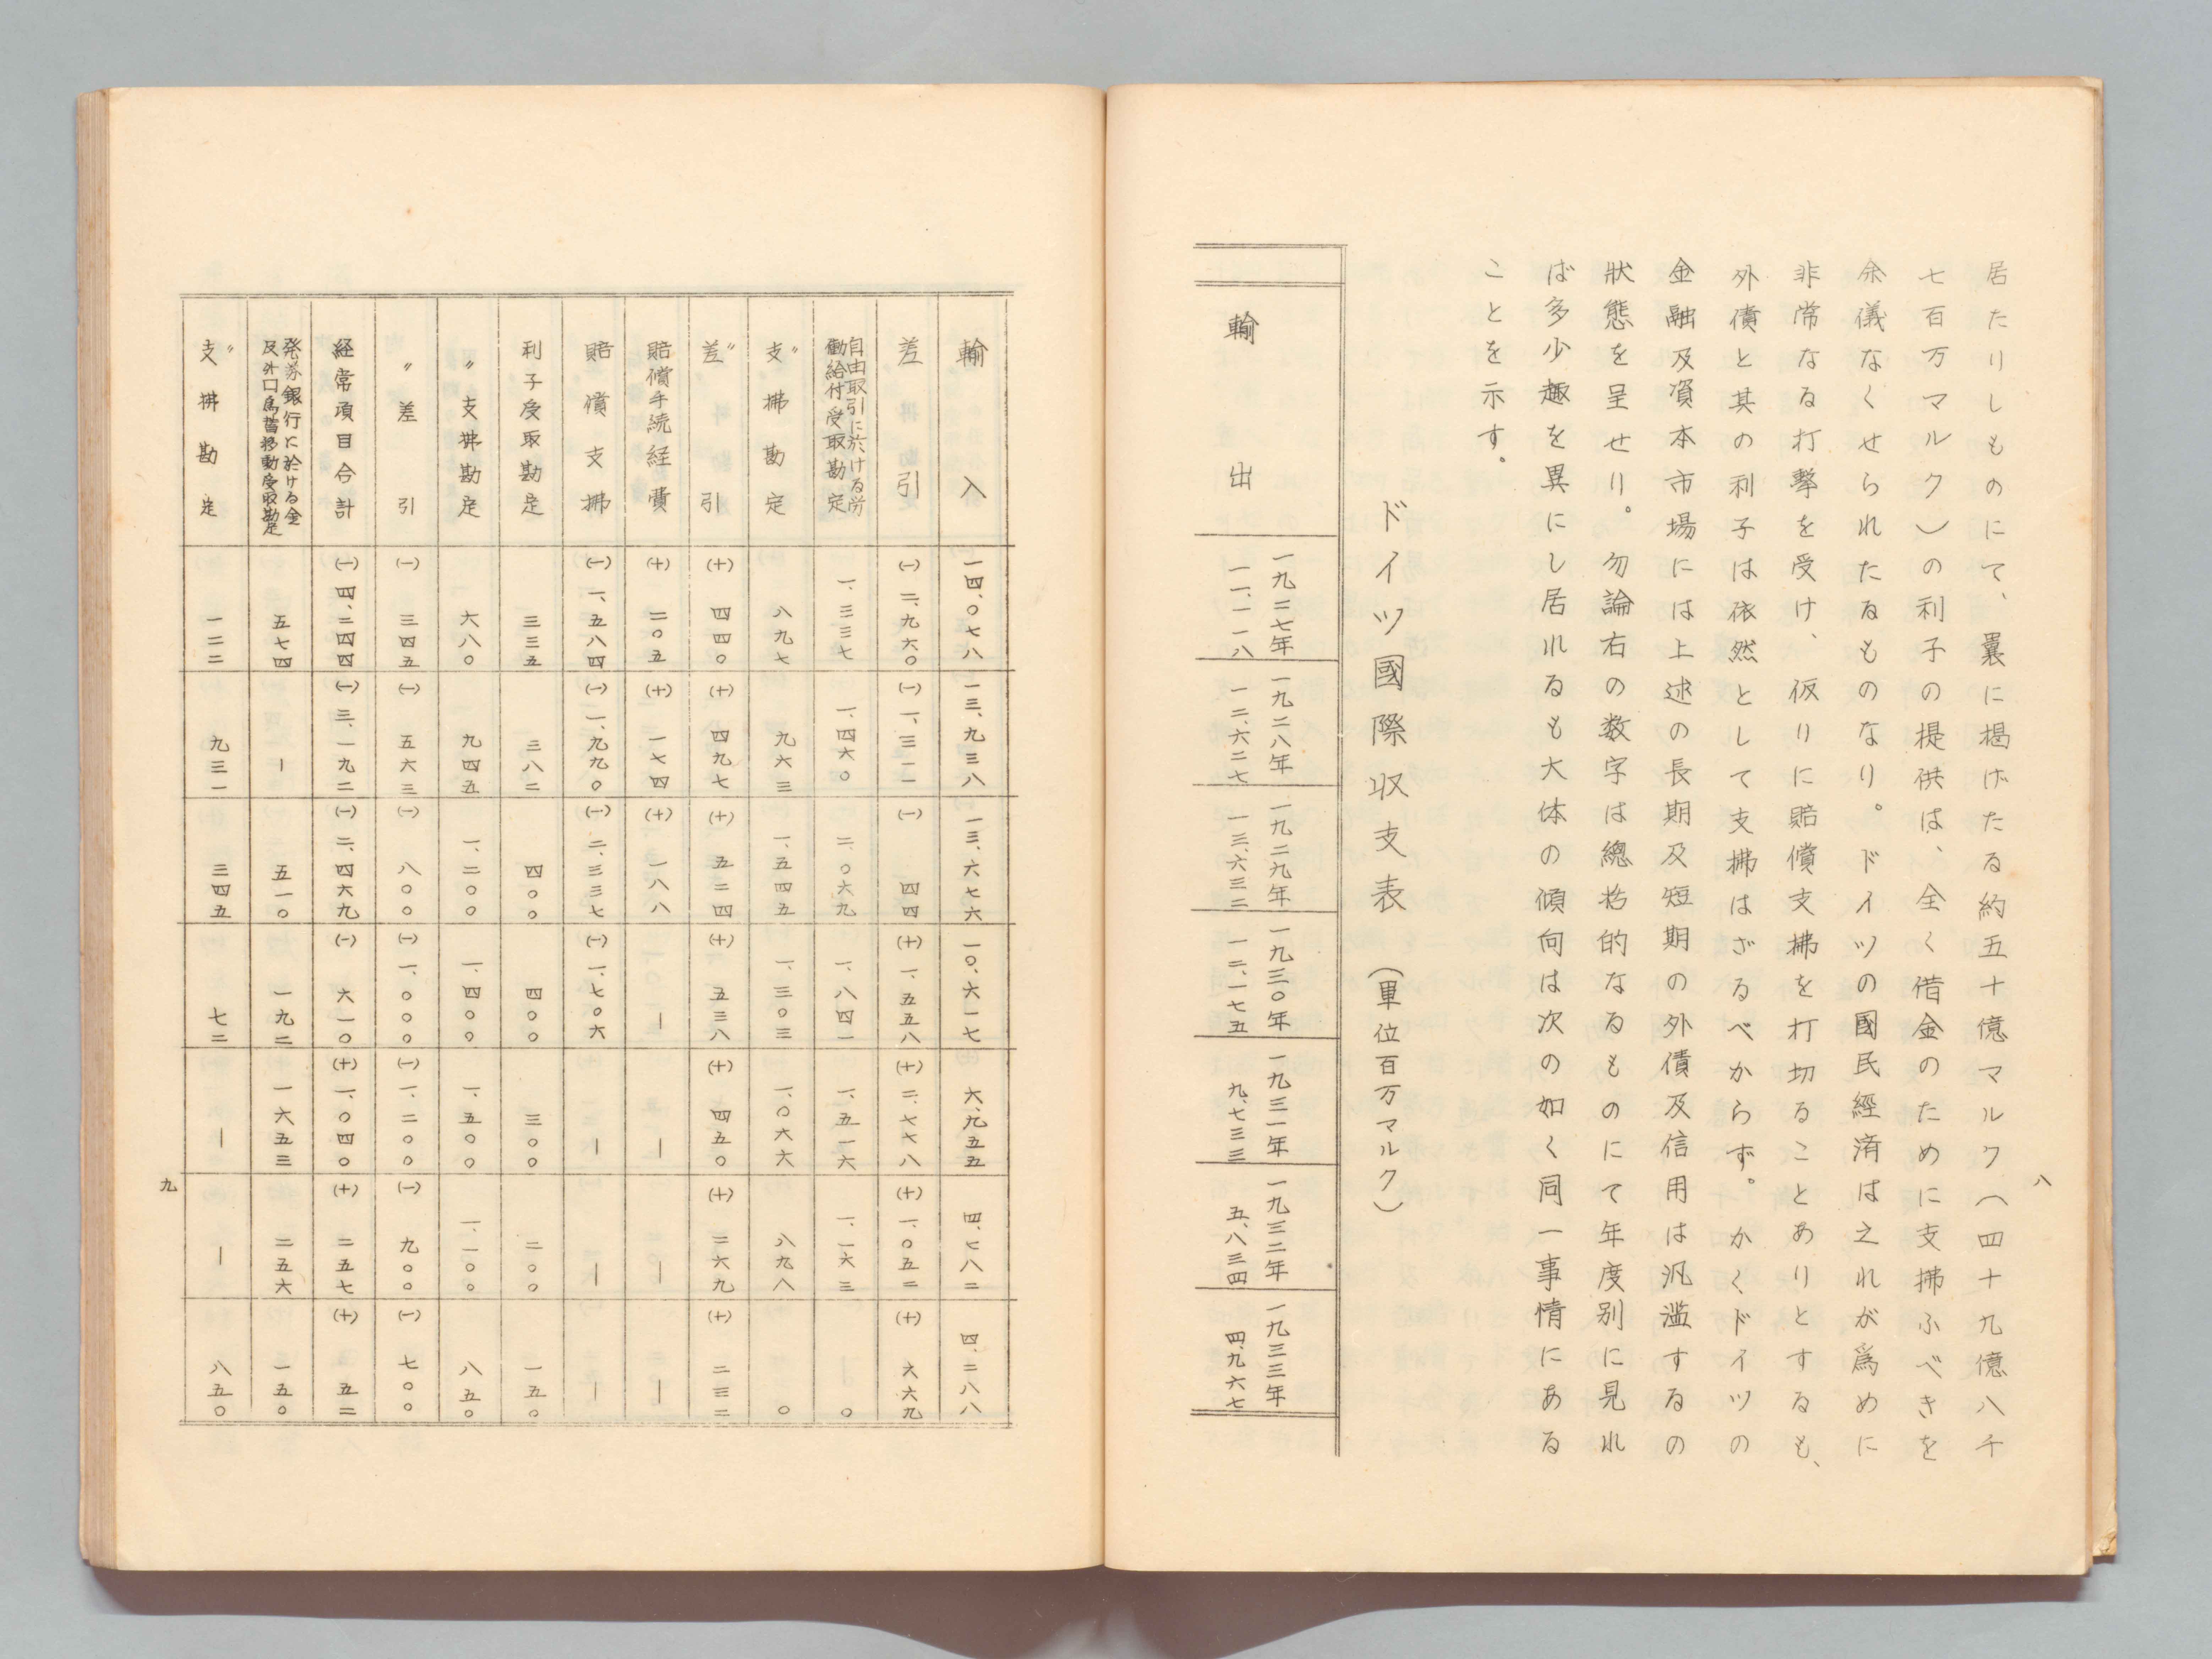 八
居たりしものにて、曩に揭げたる約五十億マルク（四十九億八千
七百万マルク）の利子の提供は、全く借金のために支拂ふべきを
余儀なくせられたるものなり。ドイツの國民經済は之れが爲めに
非常なる打撃を受け、仮りに賠償支拂を打切ることありとするも、
外債と其の利子は依然として支拂はざるべからず。かくドイツの
金融及資本市場には上述の長期及短期の外債及信用は汎濫するの
狀態を呈せり。勿論右の数字は總括的なるものにて年度別に見れ
ば多少趣を異にし居れるも大体の傾向は次の如く同一事情にある
ことを示す。
ドイツ國際収支表（單位百万マルク）
一九二七年 一九二八年 一九二九年 一九三〇年 一九三一年 一九三二年 一九三三年
輸出 一一、一一八 一二、六二七 一三、六三二 一二、一七五 九、七三三 五、八三四 四、九六七
輸入 一四、〇七八 一三、九三八 一三、六七六 一〇、六一七 六、九五五 四、七八二 四、二八八
差引 (一)二、九六〇 (一)一、三一一 (一)四四 (十)一、五五八 (十)二、七七八 (十)一、〇五二 (十)六六九
自由取引に於ける労
働給付受取勘定 一、三三七 一、四六〇 二、〇六九 一、八四一 一、五一六 一、一六三 〇
〃支拂勘定 八九七 九六三 一、五四五 一、三〇三 一、〇六六 八九八 〇
〃差引 (十)四四〇 (十)四九七 (十)五二四 (十)五三八 (十)四五〇 (十)二六九 (十)二三二
賠償手続経費 (十)二〇五 (十)一七四 (十)一八八 ー ー ー ー
賠償支拂 (一)一、五八四 (一)一、九九〇 (一)二、三三七 (一)一、七〇六 ー ー ー
利子受取勘定 三三五 三八二 四〇〇 四〇〇 三〇〇 二〇〇 一五〇
〃支拂勘定 六八〇 九四五 一、二〇〇 一、四〇〇 一、五〇〇 一、一〇〇 八五〇
〃差引 (一)三四五 (一)五六三 (一)八〇〇 (一)一、〇〇〇 (一)一、二〇〇 (一)九〇〇 (一)七〇〇
経常項目合計 (一)四、二四四 (一)三、一九二 (一)二、四六九 (一)六一〇 (十)一、〇四〇 (十)二五七 (十)五二
発券銀行に於ける金
及外口爲替移動受取勘定 五七四 ー 五一〇 一九二 一六五三 二五六 一五〇
〃支拂勘定 一二二 九三一 三四五 七二 ー ー 八五〇
九